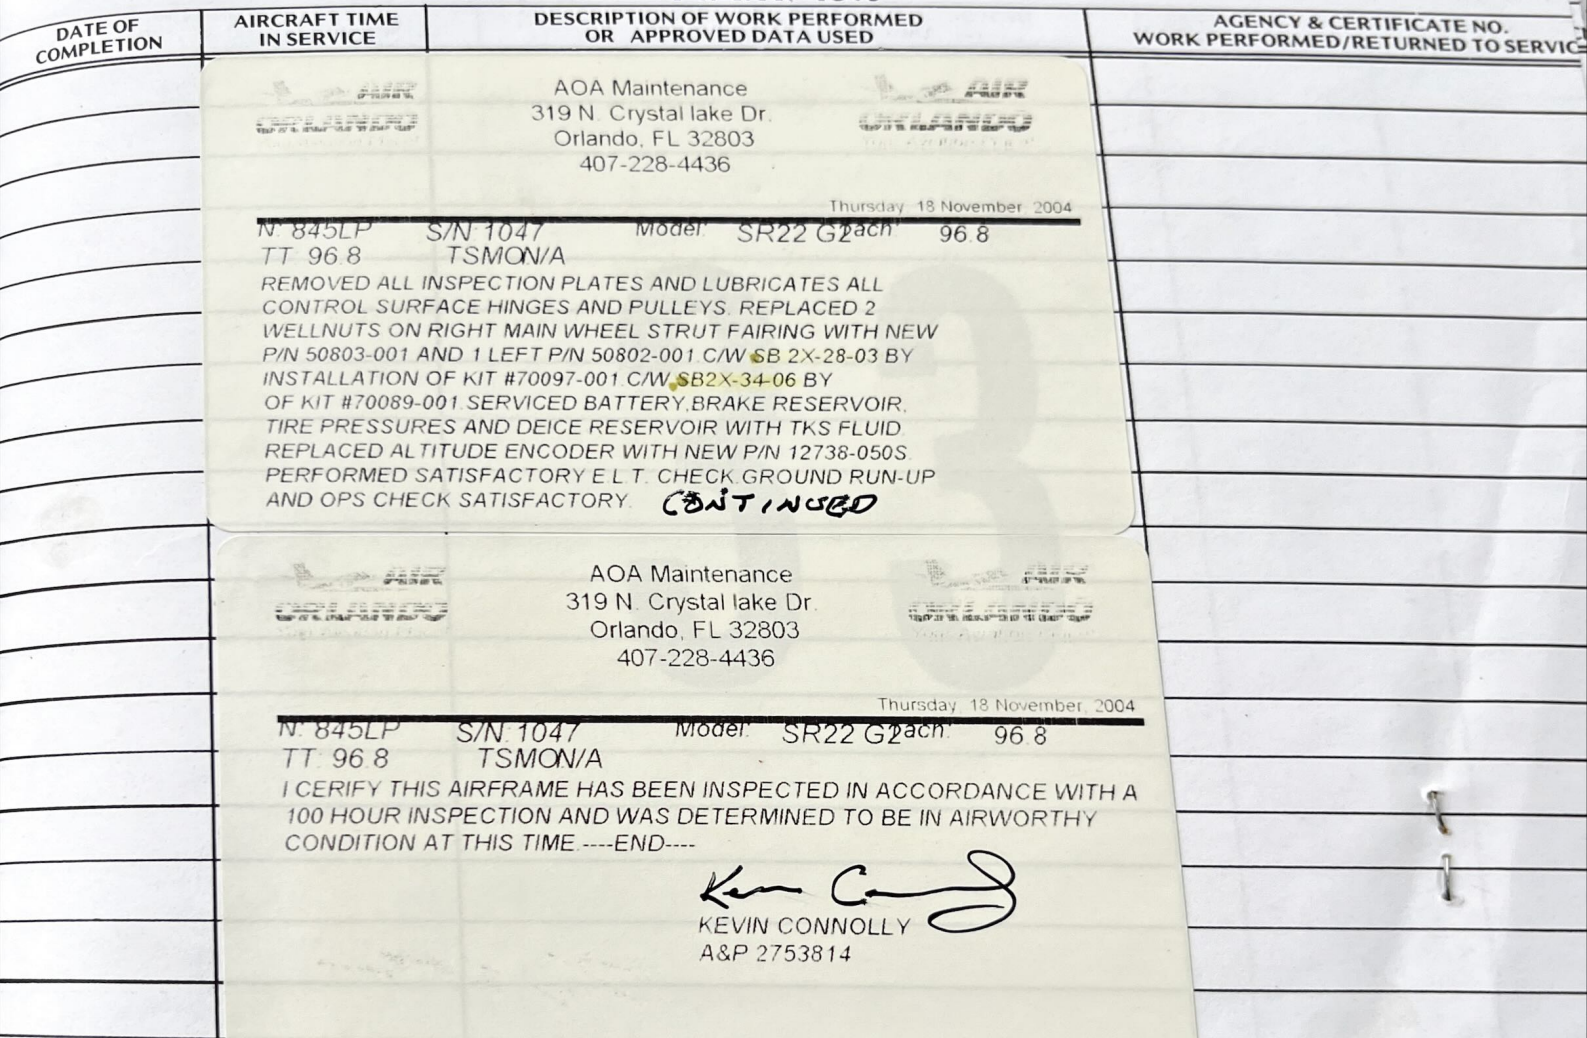 DATE OF
COMPLETION
AIRCRAFT TIME
IN SERVICE
DESCRIPTION OF WORK PERFORMED
OR APPROVED DATA USED
AGENCY & CERTIFICATE NO.
WORK PERFORMED/RETURNED TO SERVIC
AIR
ORLANDO
AOA Maintenance
319 N. Crystal lake Dr.
Orlando, FL 32803
407-228-4436
AIR
ORLANDO
Thursday, 18 November, 2004
N: 845LP S/N: 1047 Model: SR22 G2 ach: 96.8
TT: 96.8 TSMON/A
REMOVED ALL INSPECTION PLATES AND LUBRICATES ALL
CONTROL SURFACE HINGES AND PULLEYS. REPLACED 2
WELLNUTS ON RIGHT MAIN WHEEL STRUT FAIRING WITH NEW
P/N 50803-001 AND 1 LEFT P/N 50802-001.C/W SB 2X-28-03 BY
INSTALLATION OF KIT #70097-001.C/W SB2X-34-06 BY
OF KIT #70089-001.SERVICED BATTERY,BRAKE RESERVOIR,
TIRE PRESSURES AND DEICE RESERVOIR WITH TKS FLUID.
REPLACED ALTITUDE ENCODER WITH NEW P/N 12738-050S.
PERFORMED SATISFACTORY E.L.T. CHECK.GROUND RUN-UP
AND OPS CHECK SATISFACTORY. CONTINUED
AIR
ORLANDO
AOA Maintenance
319 N. Crystal lake Dr.
Orlando, FL 32803
407-228-4436
AIR
ORLANDO
Thursday, 18 November, 2004
N: 845LP S/N: 1047 Model: SR22 G2 ach: 96.8
TT: 96.8 TSMON/A
I CERIFY THIS AIRFRAME HAS BEEN INSPECTED IN ACCORDANCE WITH A
100 HOUR INSPECTION AND WAS DETERMINED TO BE IN AIRWORTHY
CONDITION AT THIS TIME.----END----
KEVIN CONNOLLY
A&P 2753814